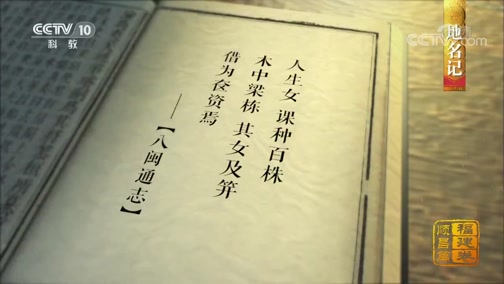 CCTV 10
科教
CCTV.com
地名记
人生女 课种百株
木中梁栋 其女及笄
借为奁资焉
——【八闽通志】
福建卷
顺昌篇